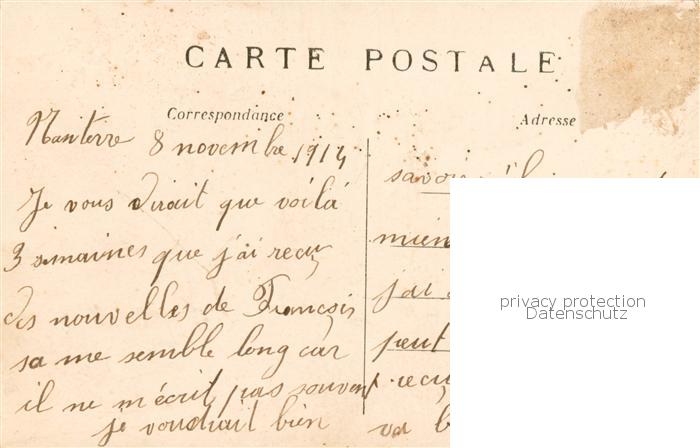 CARTE POSTALE
Correspondance
Adresse
Nanterre 8 novembre 1914
Je vous dirait que voilà
3 simaines que j'ai reçu
des nouvelles de François
sa me semble long car
il ne m'écrit pas souvent
je voudrait bien
savoir
mien
j'ai
peut
reçu
va b
privacy protection
Datenschutz